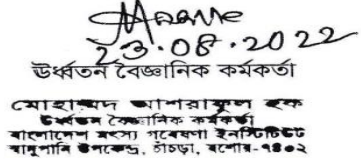 23.08.2022
ঊর্ধ্বতন বৈজ্ঞানিক কর্মকর্তা
মোহাম্মদ আশরাফুল হক
ঊর্ধ্বতন বৈজ্ঞানিক কর্মকর্তা
বাংলাদেশ মৎস্য গবেষণা ইনস্টিটিউট
স্বাদুপানি উপকেন্দ্র, চাঁচড়া, যশোর-৭৪০২